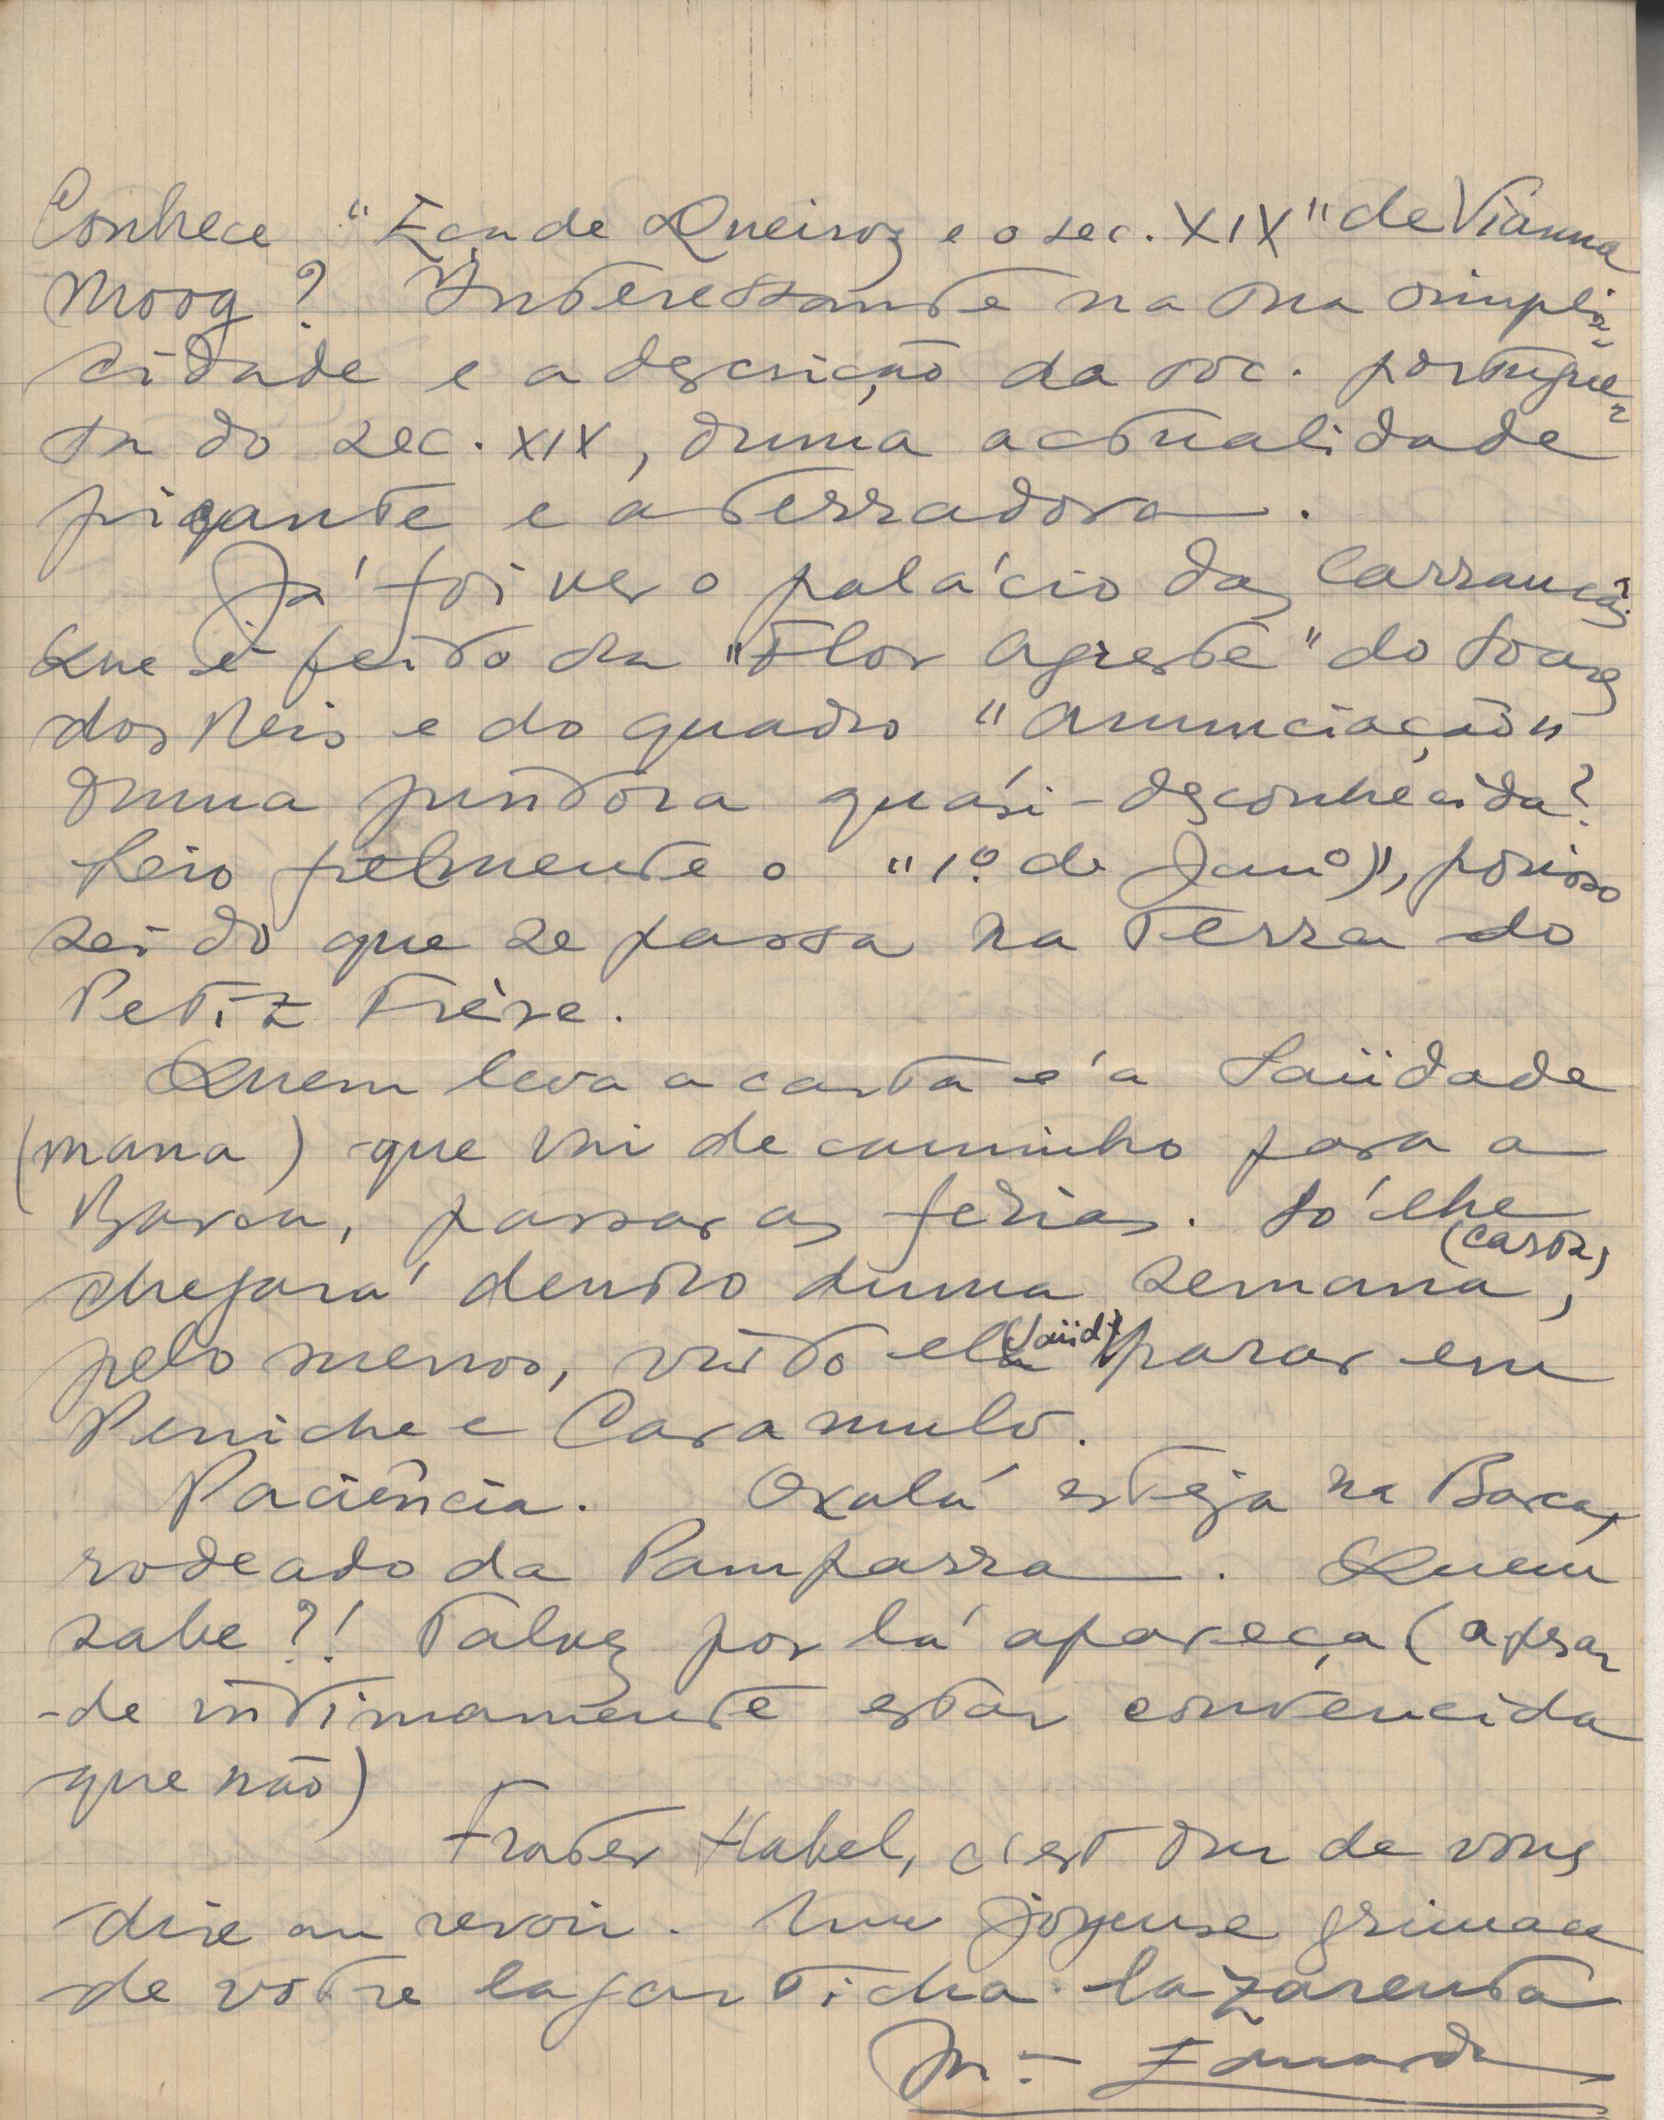 Conhece "Eça de Queiroz e o sec. XIX" de Vianna
Moog? Interessante na sua simpli-
cidade e a descrição da soc. portugue-
sa do sec. XIX, duma actualidade
picante e aterradora.
Já foi ver o palácio das Carrancas
Que é feito da "Flor Agreste" do Soares
dos Reis e do quadro "Anunciação"
duma pintora quási-desconhecida?
Leio fielmente o "1º de Janº", porisso
sei do que se passa na terra do
Petiz Frère.
Quem leva a carta é a Saüdade
(mana) que vai de caminho para a
Barca, passar as ferias. Só lhe
chegará dentro duma semana, (carta)
pelo menos, visto ela (Saüd.) parar em
Peniche e Caramulo.
Paciência. Oxalá esteja na Barca,
rodeado da Pamparra. Quem
sabe?! Talvez por lá apareça (apesar
-de intimamente estar convencida
que não)
Frater Habel, c'est dur de vous
dire au revoir. Une joyeuse grimace
de votre lagarticha lazarenta
Mª Eduarda